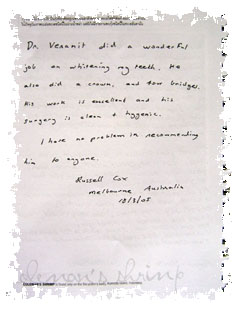 Dr. Veeanit did a wonderful
job on whitening my teeth. He
also did a crown, and four bridges.
His work is excellent and his
surgery is clean & hygenic.
I have no problem in recomending
him to anyone.
Russell Cox
Melbourne Australia
18/8/05